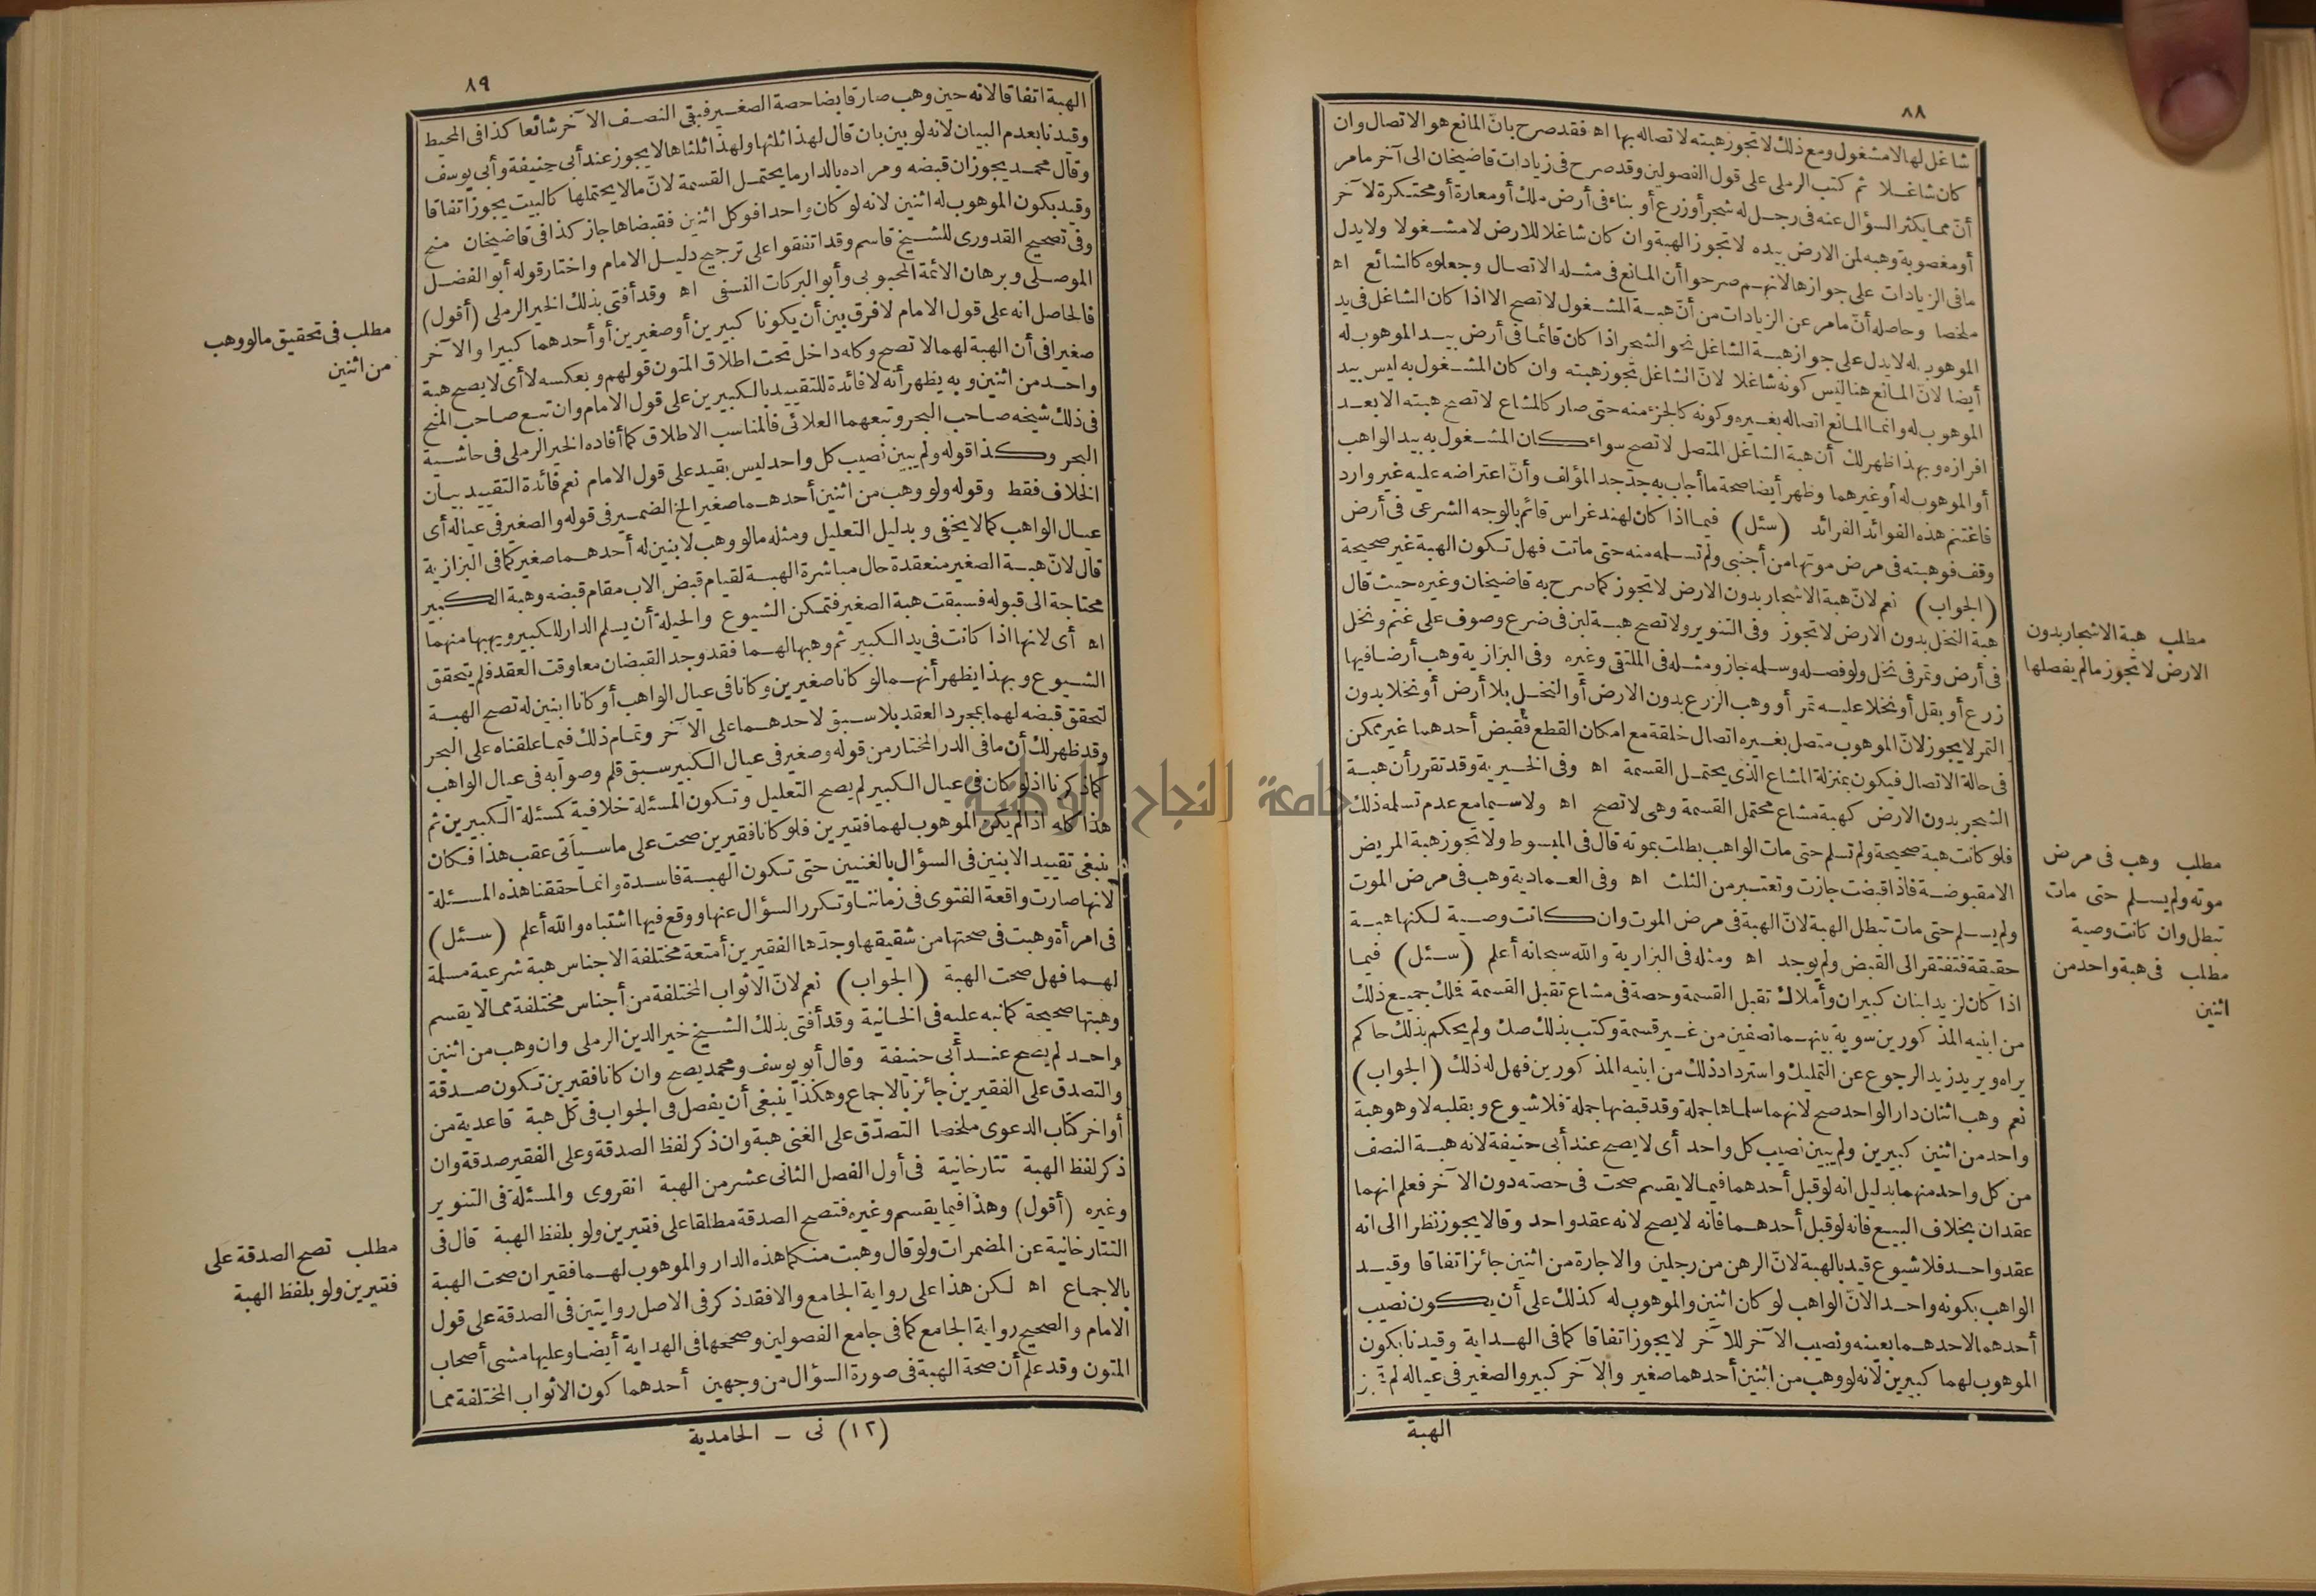 ٨٨
شاغل لها لا مشغول ومع ذلك لا تجوز هبته لاتصاله بها اه فقد صرح بانّ المانع هو الاتصال وان
كان شاغلا ثم كتب الرملى على قول الفصولين وقد صرح فى زيادات قاضيخان الى آخر مامر
أنّ مما يكثر السؤال عنه فى رجل له شجر أو زرع أو بناء فى أرض ملك أو معارة أو محتكرة لآخر
أو مغصوبة وهبه لمن الارض بيده لا تجوز الهبة وان كان شاغلا للارض لا مشغولا ولا يدل
ما فى الزيادات على جوازها لانهم صرحوا أن المانع فى مثله الاتصال وجعلوه كالشائع اه
ملخصا وحاصله أنّ مامر عن الزيادات من أنّ هبة المشغول لا تصح الا اذا كان الشاغل فى يد
الموهوب له لا يدل على جواز هبة الشاغل نحو الشجر اذا كان قائما فى أرض بيد الموهوب له
أيضا لانّ المانع هنا ليس كونه شاغلا لانّ الشاغل تجوز هبته وان كان المشغول به ليس بيد
الموهوب له وانما المانع اتصاله بغيره وكونه كالجزء منه حتى صار كالمشاع لا تصح هبته الا بعد
افرازه وبهذا ظهر لك أن هبة الشاغل المتصل لا تصح سواء كان المشغول به بيد الواهب
أو الموهوب له أو غيرهما وظهر أيضا صحة ما أجاب به جدّ جد المؤلف وأنّ اعتراضه عليه غير وارد
فاغتنم هذه الفوائد الفرائد (سئل) فيما اذا كان لهند غراس قائم بالوجه الشرعى فى أرض
وقف فوهبته فى مرض موتها من أجنبى ولم تسلمه منه حتى ماتت فهل تكون الهبة غير صحيحة
(الجواب) نعم لانّ هبة الاشجار بدون الارض لا تجوز كما صرح به قاضيخان وغيره حيث قال
هبة النخل بدون الارض لا تجوز وفى التنوير ولا تصح هبة لبن فى ضرع وصوف على غنم ونخل
فى أرض وتمر فى نخل ولو فصله وسلمه جاز ومثله فى الملتقى وغيره وفى البزازية وهب أرضا فيها
زرع أو بقل أو نخلا عليه تمر أو وهب الزرع بدون الارض أو النخل بلا أرض أو نخلا بدون
التمر لا يجوز لانّ الموهوب متصل بغيره اتصال خلقة مع امكان القطع فقبض أحدهما غير ممكن
فى حالة الاتصال فيكون بمنزلة المشاع الذى يحتمل القسمة اه وفى الخيرية وقد تقرر أن هبة
الشجر بدون الارض كهبة مشاع محتمل القسمة وهى لا تصح اه ولا سيما مع عدم تسلمه ذلك
فلو كانت هبة صحيحة ولم تسلم حتى مات الواهب بطلت بموته قال فى المبسوط ولا تجوز هبة المريض
الا مقبوضة فاذا قبضت جازت وتعتبر من الثلث اه وفى العمادية وهب فى مرض الموت
ولم يسلم حتى مات تبطل الهبة لانّ الهبة فى مرض الموت وان كانت وصية لكنها هبة
حقيقة فتفتقر الى القبض ولم يوجد اه ومثله فى البزازية والله سبحانه أعلم (سئل) فيما
اذا كان لزيد ابنان كبيران وأملاك تقبل القسمة وحصة فى مشاع تقبل القسمة فملك جميع ذلك
من ابنيه المذكورين سوية بينهما نصفين من غير قسمة وكتب بذلك صك ولم يحكم بذلك حاكم
يراه ويريد زيد الرجوع عن التمليك واسترداد ذلك من ابنيه المذكورين فهل له ذلك (الجواب)
نعم وهب اثنان دارا لواحد صح لانهما سلماها جملة وقد قبضها جملة فلا شيوع وبقلبه لا وهو هبة
واحد من اثنين كبيرين ولم يبين نصيب كل واحد أى لا يصح عند أبى حنيفة لانه هبة النصف
من كل واحد منهما بدليل انه لو قبل أحدهما فيما لا يقسم صحت فى حصته دون الآخر فعلم انهما
عقدان بخلاف البيع فانه لو قبل أحدهما فانه لا يصح لانه عقد واحد وقالا يجوز نظرا الى انه
عقد واحد فلا شيوع قيد بالهبة لانّ الرهن من رجلين والاجارة من اثنين جائز اتفاقا وقيد
الواهب بكونه واحدا لانّ الواهب لو كان اثنين والموهوب له كذلك على أن يكون نصيب
أحدهما لاحدهما بعينه ونصيب الآخر للآخر لا يجوز اتفاقا كما فى الهداية وقيدنا بكون
الموهوب لهما كبيرين لانه لو وهب من اثنين أحدهما صغير والآخر كبير والصغير فى عياله لم تجز
الهبة
مطلب هبة الاشجار بدون
الارض لا تجوز مالم يفصلها
مطلب وهب فى مرض
موته ولم يسلم حتى مات
تبطل وان كانت وصية
مطلب فى هبة واحد من
اثنين
٨٩
الهبة اتفاقا لانه حين وهب صار قابضا حصة الصغير فبقى النصف الآخر شائعا كذا فى المحيط
وقيدنا بعدم البيان لانه لو بين بان قال لهذا ثلثها ولهذا ثلثاها لا يجوز عند أبى حنيفة وأبى يوسف
وقال محمد يجوز ان قبضه ومراده بالدار ما يحتمل القسمة لانّ ما لا يحتملها كالبيت يجوز اتفاقا
وقيد بكون الموهوب له اثنين لانه لو كان واحدا فوكل اثنين فقبضاها جاز كذا فى قاضيخان منح
وفى تصحيح القدورى للشيخ قاسم وقد اتفقوا على ترجيح دليل الامام واختار قوله أبو الفضل
الموصلى وبرهان الائمة المحبوبى وأبو البركات النسفى اه وقد أفتى بذلك الخير الرملى (أقول)
فالحاصل انه على قول الامام لا فرق بين أن يكونا كبيرين أو صغيرين أو أحدهما كبيرا والآخر
صغيرا فى أن الهبة لهما لا تصح وكله داخل تحت اطلاق المتون قولهم وبعكسه لا أى لا يصح هبة
واحد من اثنين وبه يظهر أنه لا فائدة للتقييد بالكبيرين على قول الامام وان تبع صاحب المنح
فى ذلك شيخه صاحب البحر وتبعهما العلائى فالمناسب الاطلاق كما أفاده الخير الرملى فى حاشية
البحر وكذا قوله ولم يبين نصيب كل واحد ليس بقيد على قول الامام نعم فائدة التقييد بيان
الخلاف فقط وقوله ولو وهب من اثنين أحدهما صغير الخ الضمير فى قوله والصغير فى عياله أى
عيال الواهب كما لا يخفى وبدليل التعليل ومثله مالو وهب لابنين له أحدهما صغير كما فى البزازية
قال لانّ هبة الصغير منعقدة حال مباشرة الهبة لقيام قبض الاب مقام قبضه وهبة الكبير
محتاجة الى قبوله فسبقت هبة الصغير فتمكن الشيوع والحيلة أن يسلم الدار للكبير ويهبها منهما
اه أى لانها اذا كانت فى يد الكبير ثم وهبها لهما فقد وجد القبضان معا وقت العقد فلم يتحقق
الشيوع وبهذا يظهر أنهما لو كانا صغيرين وكانا فى عيال الواهب أو كانا ابنين له تصح الهبة
لتحقق قبضه لهما بمجرد العقد بلا سبق لاحدهما على الآخر وتمام ذلك فيما علقناه على البحر
وقد ظهر لك أن ما فى الدر المختار من قوله وصغير فى عيال الكبير سبق قلم وصوابه فى عيال الواهب
كما ذكرنا اذ لو كان فى عيال الكبير لم يصح التعليل وتكون المسئلة خلافية كمسئلة الكبيرين ثم
هذا كله اذا لم يكن الموهوب لهما فقيرين فلو كانا فقيرين صحت على ما سيأتى عقب هذا فكان
ينبغى تقييد الابنين فى السؤال بالغنيين حتى تكون الهبة فاسدة وانما حققنا هذه المسئلة
لانها صارت واقعة الفتوى فى زماننا وتكرر السؤال عنها ووقع فيها اشتباه والله أعلم (سئل)
فى امرأة وهبت فى صحتها من شقيقها وجدّها الفقيرين أمتعة مختلفة الاجناس هبة شرعية مسلمة
لهما فهل صحت الهبة (الجواب) نعم لانّ الاثواب المختلفة من أجناس مختلفة مما لا يقسم
وهبتها صحيحة كما نبه عليه فى الخانية وقد أفتى بذلك الشيخ خير الدين الرملى وان وهب من اثنين
واحد لم يصح عند أبى حنيفة وقال أبو يوسف ومحمد يصح وان كانا فقيرين تكون صدقة
والتصدق على الفقيرين جائز بالاجماع وهكذا ينبغى أن يفصل فى الجواب فى كل هبة قاعدية من
أواخر كتاب الدعوى ملخصا التصدّق على الغنى هبة وان ذكر لفظ الصدقة وعلى الفقير صدقة وان
ذكر لفظ الهبة تتارخانية فى أول الفصل الثانى عشر من الهبة انقروى والمسئلة فى التنوير
وغيره (أقول) وهذا فيما يقسم وغيره فتصح الصدقة مطلقا على فقيرين ولو بلفظ الهبة قال فى
التتارخانية عن المضمرات ولو قال وهبت منكما هذه الدار والموهوب لهما فقيران صحت الهبة
بالاجماع اه لكن هذا على رواية الجامع والا فقد ذكر فى الاصل روايتين فى الصدقة على قول
الامام والصحيح رواية الجامع كما فى جامع الفصولين وصححها فى الهداية أيضا وعليها مشى أصحاب
المتون وقد علم أن صحة الهبة فى صورة السؤال من وجهين أحدهما كون الاثواب المختلفة مما
(١٢) نى – الحامدية
مطلب فى تحقيق مالو وهب
من اثنين
مطلب تصح الصدقة على
فقيرين ولو بلفظ الهبة
جامعة النجاح الوطنية